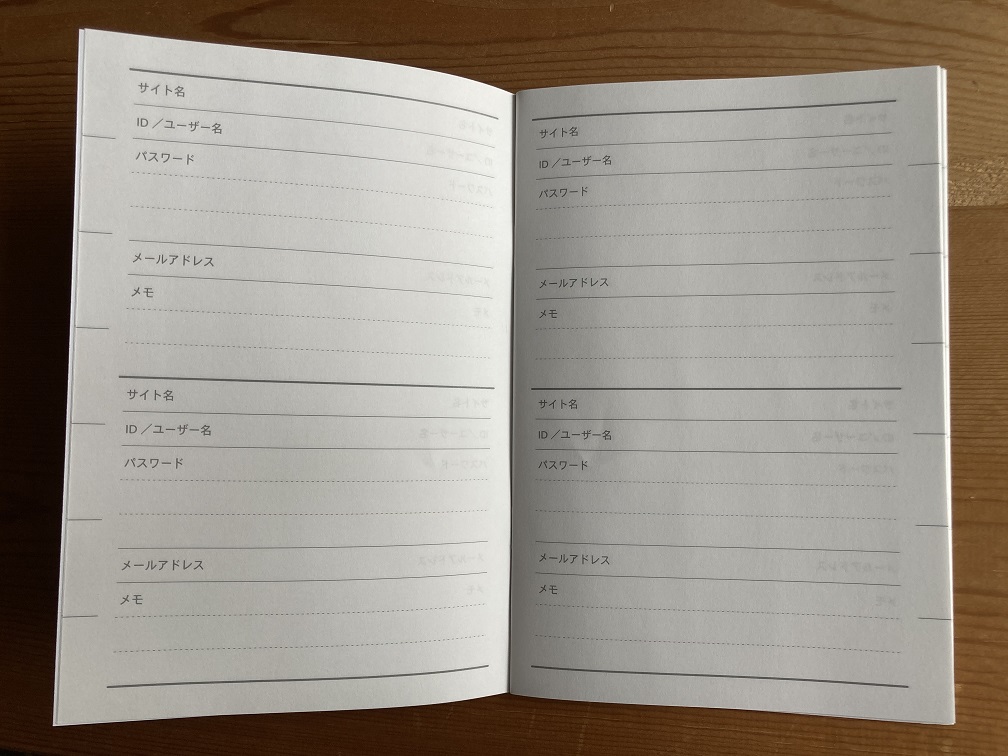 サイト名
ID／ユーザー名
パスワード
メールアドレス
メモ
サイト名
ID／ユーザー名
パスワード
メールアドレス
メモ
サイト名
ID／ユーザー名
パスワード
メールアドレス
メモ
サイト名
ID／ユーザー名
パスワード
メールアドレス
メモ